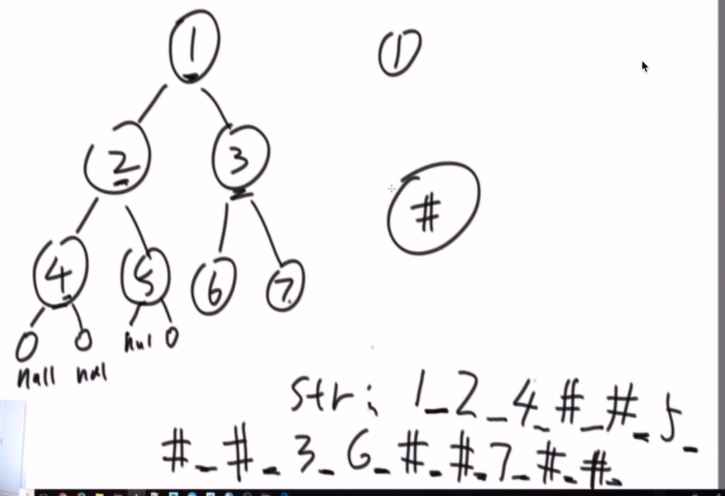 1
1
2
3
#
4
5
6
7
null
null
nul
str: 1_2_4_#_#_5_
#_#_3_6_#_#_7_#_#_